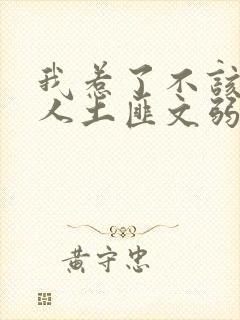 我惹了不该
人土匪文弱
黄守忠